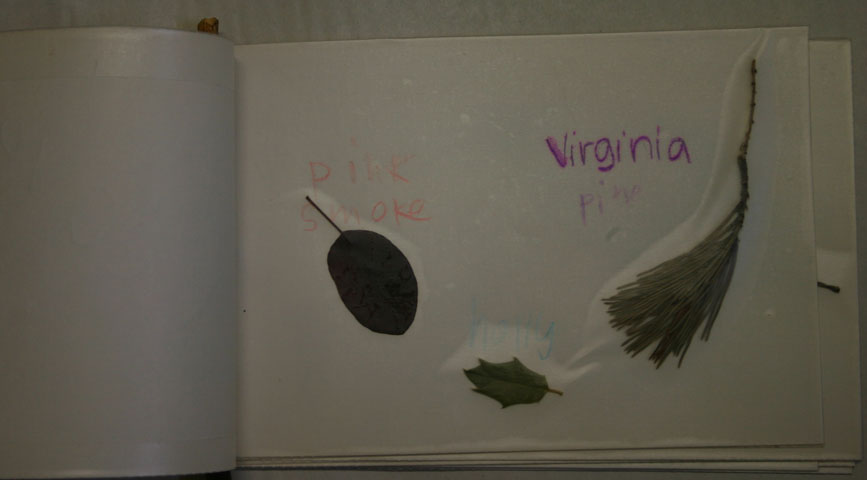 pink
smoke
Virginia
pine
holly